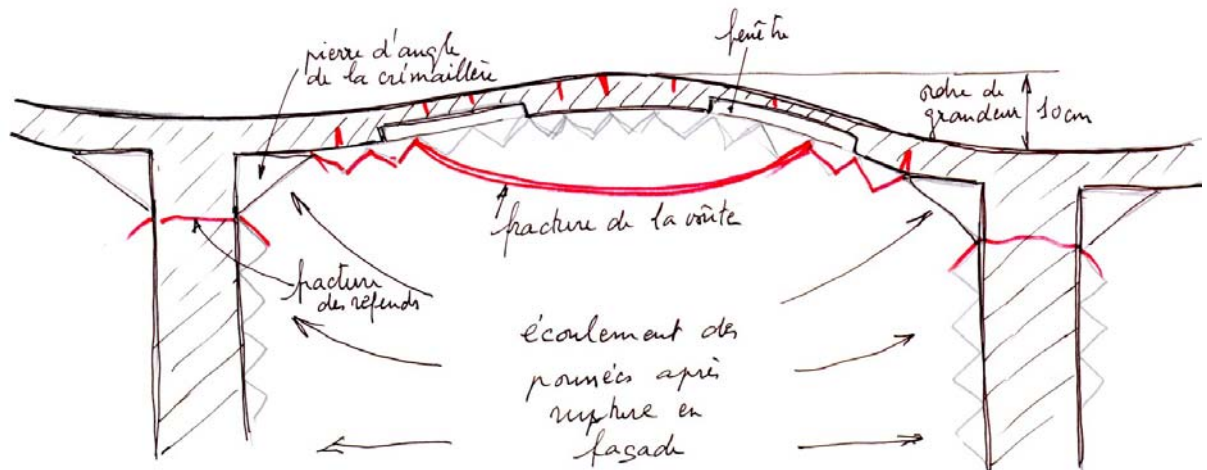 pierre d'angle
de la crémaillère
fenêtre
ordre de
grandeur 10cm
fracture de la voûte
fracture
des refends
écoulement des
poussées après
rupture en
façade